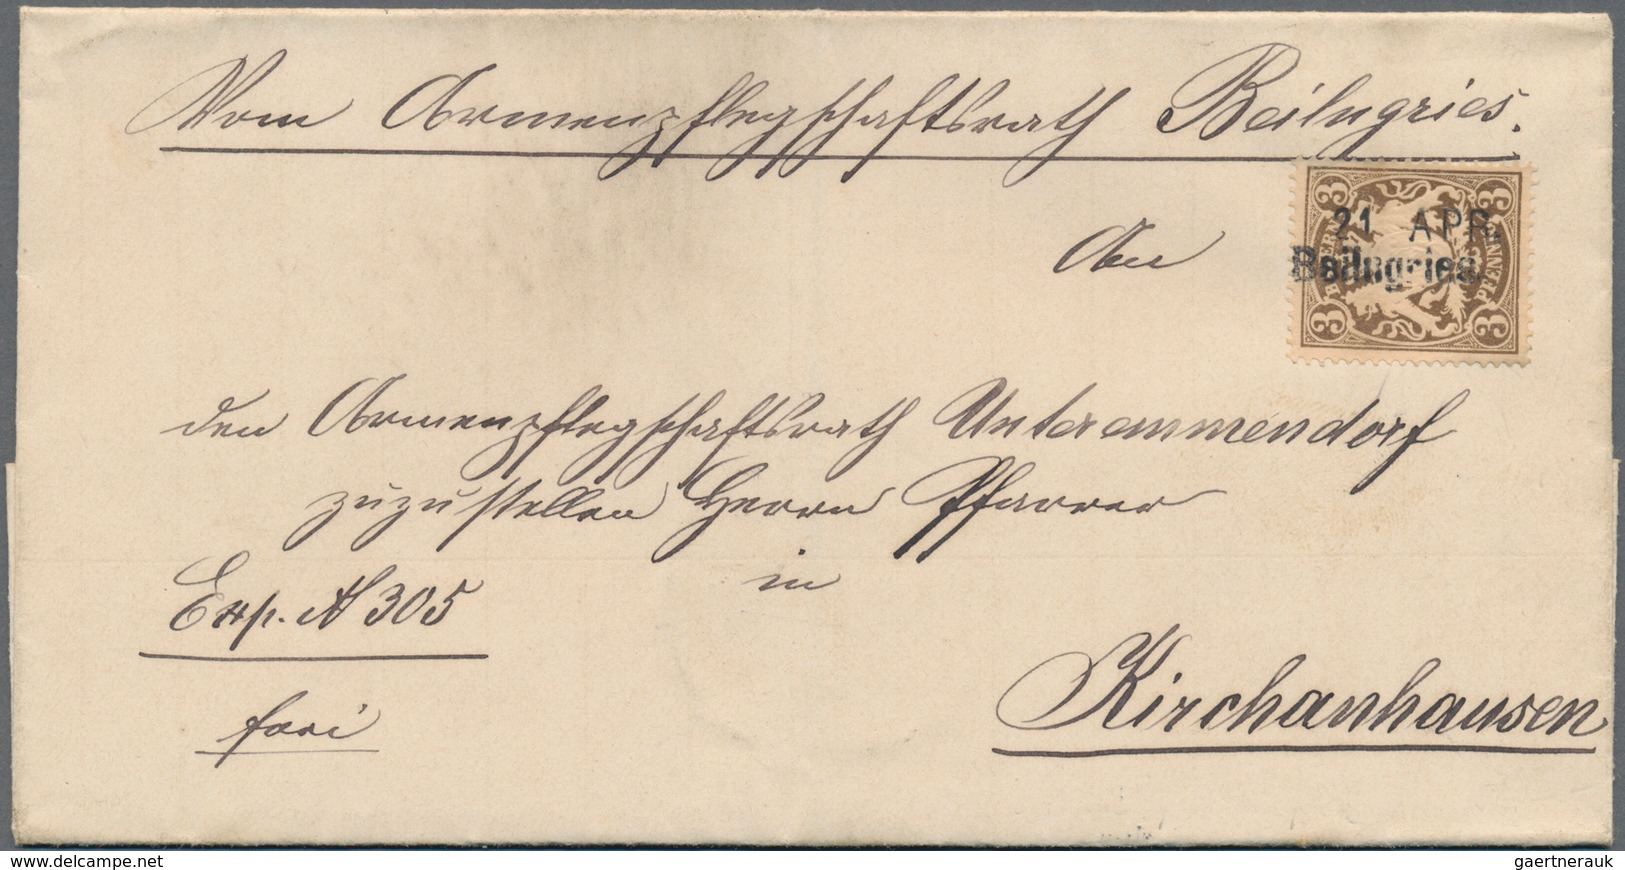 Vom Armenpflegschaftsrath Beilngries.
An
3 3
21 APR.
Beilngries
BAYERN PFENNIG
3 3
den Armenpflegschaftsrath Unteremmendorf
zuzustellen Herrn Pfarrer
in
Exp. N 305
frei
Kirchanhausen
www.delcampe.net
gaertnerauk